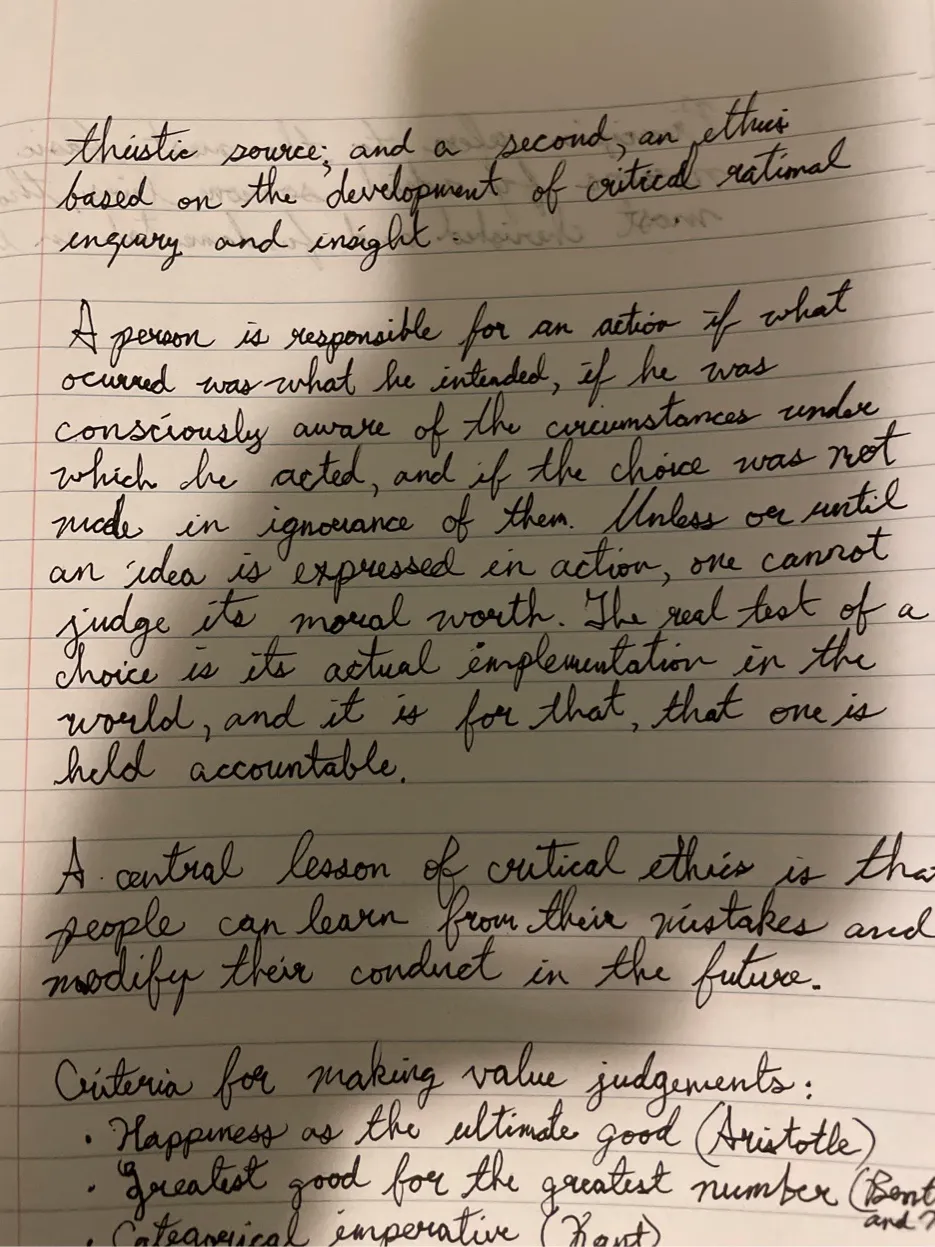 theistic source; and a second, an ethics
based on the development of critical rational
enquary and insight.
A person is responsible for an action if what
ocurred was what he intended, if he was
consciously aware of the circumstances under
which he acted, and if the choice was not
made in ignorance of them. Unless or until
an idea is expressed in action, one cannot
judge its moral worth. The real test of a
choice is its actual implementation in the
world, and it is for that, that one is
held accountable.
A central lesson of critical ethics is tha
people can learn from their mistakes and
modify their conduct in the future.
Criteria for making value judgements:
· Happiness as the ultimate good (Aristotle)
· Greatest good for the greatest number (Bent
and
· Categorical imperative (Kant)